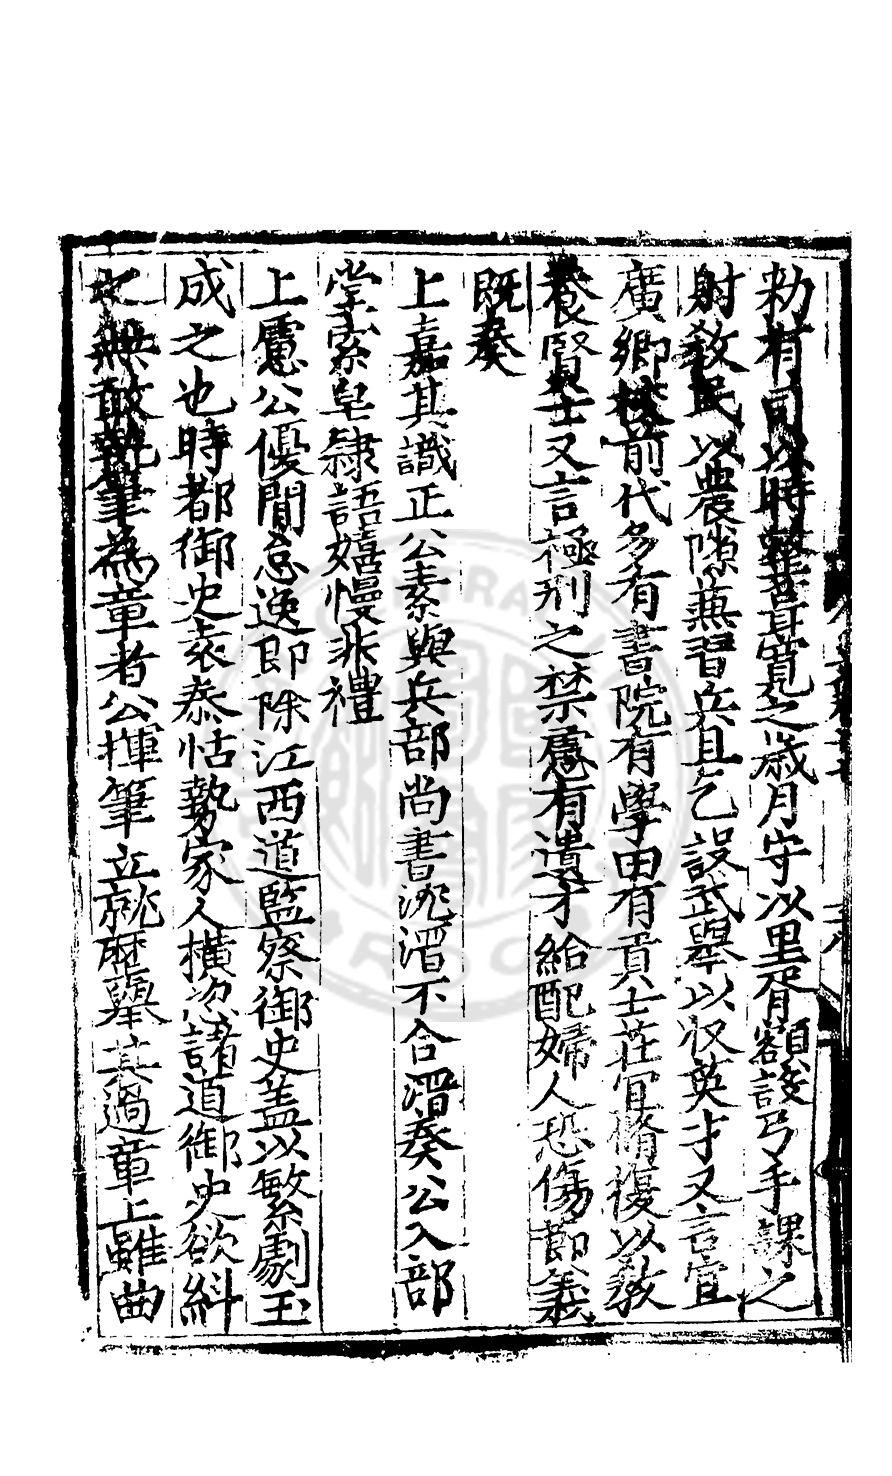 勑有司以時整葺寬之歳月守以里胥額設弓手課之
射敎民以農隙兼習兵且乞設武舉以収英才又言宜
廣鄉校前代多有書院有學田有貢士莊宜脩復以敎
養賢士又言極刑之禁慮有遺才給配婦人恐傷節義
既奏
上嘉其識正公素與兵部尚書沈溍不合溍奏公入部
堂索皂隸語嬉慢非禮
上慮公優閒怠逸即除江西道監察御史蓋以繁劇玉
成之也時都御史袁泰怙勢家人橫恣諸道御史欲糾
之無敢執筆為章者公揮筆立就歷舉其過章上雖曲